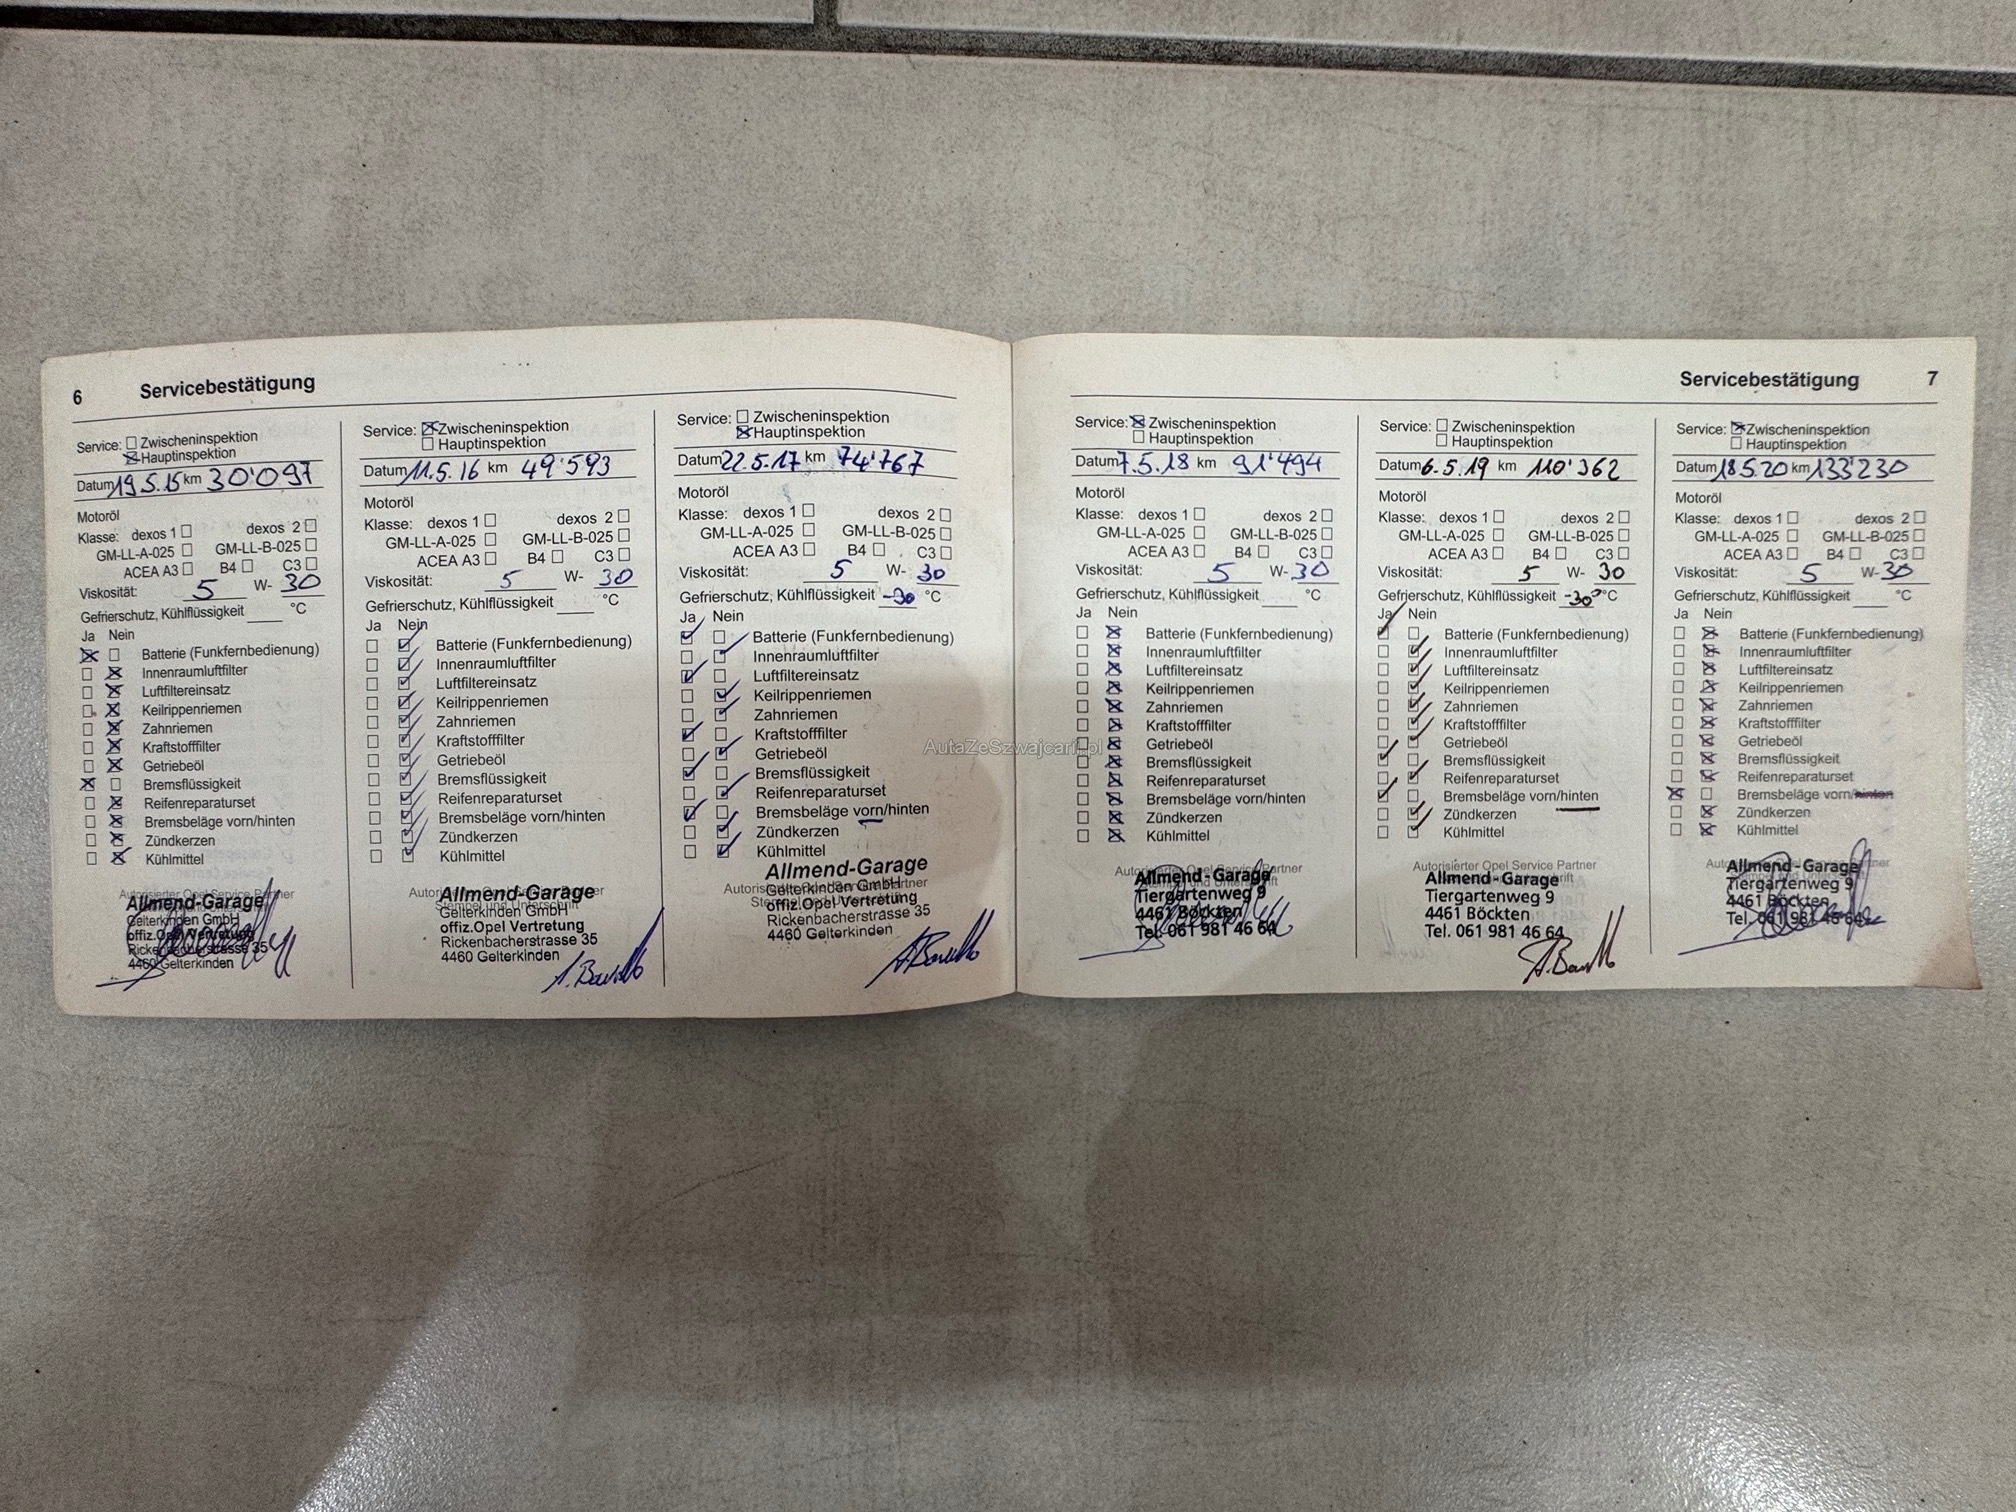 6 Servicebestätigung
Service: Zwischeninspektion
Hauptinspektion
Datum 19.5.15 km 30'097
Motoröl
Klasse: dexos 1 dexos 2
GM-LL-A-025 GM-LL-B-025
ACEA A3 B4 C3
Viskosität: 5 W- 30
Gefrierschutz, Kühlflüssigkeit °C
Ja Nein
Batterie (Funkfernbedienung)
Innenraumluftfilter
Luftfiltereinsatz
Keilrippenriemen
Zahnriemen
Kraftstofffilter
Getriebeöl
Bremsflüssigkeit
Reifenreparaturset
Bremsbeläge vorn/hinten
Zündkerzen
Kühlmittel
Autorisierter Opel Service Partner
Allmend-Garage
Gelterkinden GmbH
offiz.Opel Vertretung
Rickenbacherstrasse 35
4460 Gelterkinden
Service: Zwischeninspektion
Hauptinspektion
Datum 11.5.16 km 49'593
Motoröl
Klasse: dexos 1 dexos 2
GM-LL-A-025 GM-LL-B-025
ACEA A3 B4 C3
Viskosität: 5 W- 30
Gefrierschutz, Kühlflüssigkeit °C
Ja Nein
Batterie (Funkfernbedienung)
Innenraumluftfilter
Luftfiltereinsatz
Keilrippenriemen
Zahnriemen
Kraftstofffilter
Getriebeöl
Bremsflüssigkeit
Reifenreparaturset
Bremsbeläge vorn/hinten
Zündkerzen
Kühlmittel
Autorisierter Opel Service Partner
Allmend-Garage
Stempel und Unterschrift
Gelterkinden GmbH
offiz.Opel Vertretung
Rickenbacherstrasse 35
4460 Gelterkinden
Service: Zwischeninspektion
Hauptinspektion
Datum 22.5.17 km 74'767
Motoröl
Klasse: dexos 1 dexos 2
GM-LL-A-025 GM-LL-B-025
ACEA A3 B4 C3
Viskosität: 5 W- 30
Gefrierschutz, Kühlflüssigkeit -30 °C
Ja Nein
Batterie (Funkfernbedienung)
Innenraumluftfilter
Luftfiltereinsatz
Keilrippenriemen
Zahnriemen
Kraftstofffilter
Getriebeöl
Bremsflüssigkeit
Reifenreparaturset
Bremsbeläge vorn/hinten
Zündkerzen
Kühlmittel
Allmend-Garage
Autorisierter Opel Service Partner
Gelterkinden GmbH
Stempel und Unterschrift
offiz.Opel Vertretung
Rickenbacherstrasse 35
4460 Gelterkinden
AutaZeSzwajcarii.pl
Servicebestätigung 7
Service: Zwischeninspektion
Hauptinspektion
Datum 7.5.18 km 91'494
Motoröl
Klasse: dexos 1 dexos 2
GM-LL-A-025 GM-LL-B-025
ACEA A3 B4 C3
Viskosität: 5 W- 30
Gefrierschutz, Kühlflüssigkeit °C
Ja Nein
Batterie (Funkfernbedienung)
Innenraumluftfilter
Luftfiltereinsatz
Keilrippenriemen
Zahnriemen
Kraftstofffilter
Getriebeöl
Bremsflüssigkeit
Reifenreparaturset
Bremsbeläge vorn/hinten
Zündkerzen
Kühlmittel
Autorisierter Opel Service Partner
Allmend-Garage
Tiergartenweg 9
4461 Böckten
Tel. 061 981 46 64
Service: Zwischeninspektion
Hauptinspektion
Datum 6.5.19 km 110'362
Motoröl
Klasse: dexos 1 dexos 2
GM-LL-A-025 GM-LL-B-025
ACEA A3 B4 C3
Viskosität: 5 W- 30
Gefrierschutz, Kühlflüssigkeit -30° °C
Ja Nein
Batterie (Funkfernbedienung)
Innenraumluftfilter
Luftfiltereinsatz
Keilrippenriemen
Zahnriemen
Kraftstofffilter
Getriebeöl
Bremsflüssigkeit
Reifenreparaturset
Bremsbeläge vorn/hinten
Zündkerzen
Kühlmittel
Autorisierter Opel Service Partner
Allmend-Garage
Tiergartenweg 9
4461 Böckten
Tel. 061 981 46 64
Service: Zwischeninspektion
Hauptinspektion
Datum 18.5.20 km 133'230
Motoröl
Klasse: dexos 1 dexos 2
GM-LL-A-025 GM-LL-B-025
ACEA A3 B4 C3
Viskosität: 5 W- 30
Gefrierschutz, Kühlflüssigkeit °C
Ja Nein
Batterie (Funkfernbedienung)
Innenraumluftfilter
Luftfiltereinsatz
Keilrippenriemen
Zahnriemen
Kraftstofffilter
Getriebeöl
Bremsflüssigkeit
Reifenreparaturset
Bremsbeläge vorn/hinten
Zündkerzen
Kühlmittel
Autorisierter Opel Service Partner
Allmend-Garage
Tiergartenweg 9
4461 Böckten
Tel. 061 981 46 64